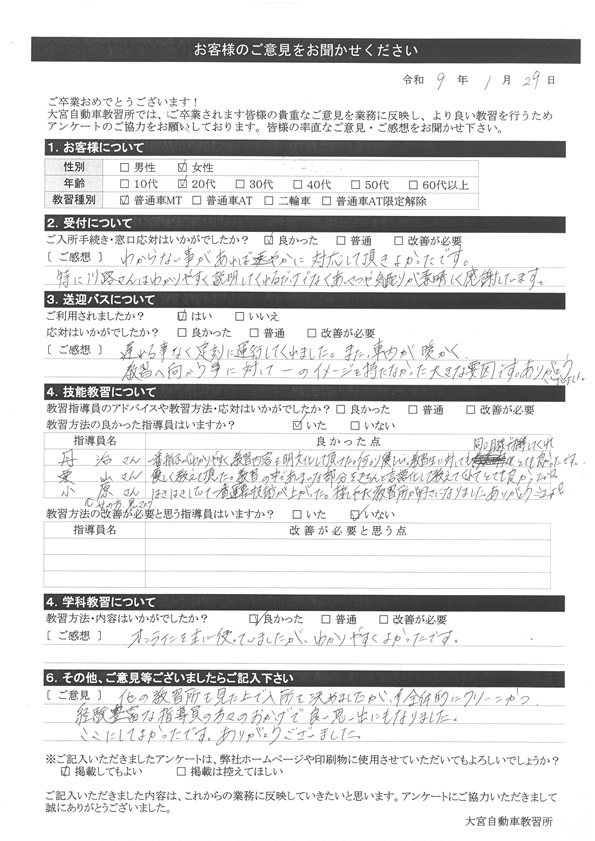 お客様のご意見をお聞かせください
令和 9 年 1 月 29 日
ご卒業おめでとうございます！
大宮自動車教習所では、ご卒業されます皆様の貴重なご意見を業務に反映し、より良い教習を行うため
アンケートのご協力をお願いしております。皆様の率直なご意見・ご感想をお聞かせ下さい。
1. お客様について
性別 □ 男性 ☑ 女性
年齢 □ 10代 ☑ 20代 □ 30代 □ 40代 □ 50代 □ 60代以上
教習種別 ☑ 普通車MT □ 普通車AT □ 二輪車 □ 普通車AT限定解除
2. 受付について
ご入所手続き・窓口応対はいかがでしたか？ ☑ 良かった □ 普通 □ 改善が必要
〔 ご感想 〕 わからない事があれば速やかに対応して頂きよかったです。
特に川路さんはわかりやすく説明してくれるだけでなくあいさつや気配りが素晴しく感謝しています。
3. 送迎バスについて
ご利用されましたか？ ☑ はい □ いいえ
応対はいかがでしたか？ □ 良かった □ 普通 □ 改善が必要
〔 ご感想 〕 遅れる事なく定刻に運行してくれました。また、車内が暖かく
教習へ向かう事に対して ーのイメージを持たなかった大きな要因です。ありがとう
ございました。
4. 技能教習について
教習指導員のアドバイスや教習方法・応対はいかがでしたか？ □ 良かった □ 普通 □ 改善が必要
教習方法の良かった指導員はいますか？ ☑ いた □ いない
指導員名 良かった点
丹治さん 一番指示がわかりやすく教習内容を明文化して頂けた。何より優しい。教習生に対しても
同じ目線で接してくれ
とても良かったです。
栗山さん 優しく教えて頂けた。教習の中であいまいな部分をきちんと言語化して教えてくれてとても良かった
小原さん はきはきしてて一番運転技術が上がった。
教習所が好きになりました。ありがとうございました
教習方法の改善が必要と思う指導員はいますか？ □ いた ☑ いない
指導員名 改善が必要と思う点
4. 学科教習について
教習方法・内容はいかがでしたか？ ☑ 良かった □ 普通 □ 改善が必要
〔 ご感想 〕 オンラインを主に使っていましたが、わかりやすくよかったです。
6. その他、ご意見等ございましたらご記入下さい
〔 ご意見 〕 他の教習所も見た上で入所を決めましたが、全体的にクリーンかつ
経験豊富な指導員の方々のおかげで良い思い出にもなりました。
ここにしてよかったです。ありがとうございました。
※ご記入いただきましたアンケートは、弊社ホームページや印刷物に使用させていただいてもよろしいでしょうか？
☑ 掲載してもよい □ 掲載は控えてほしい
ご記入いただきました内容は、これからの業務に反映していきたいと思います。アンケートにご協力いただきまして
誠にありがとうございました。
大宮自動車教習所